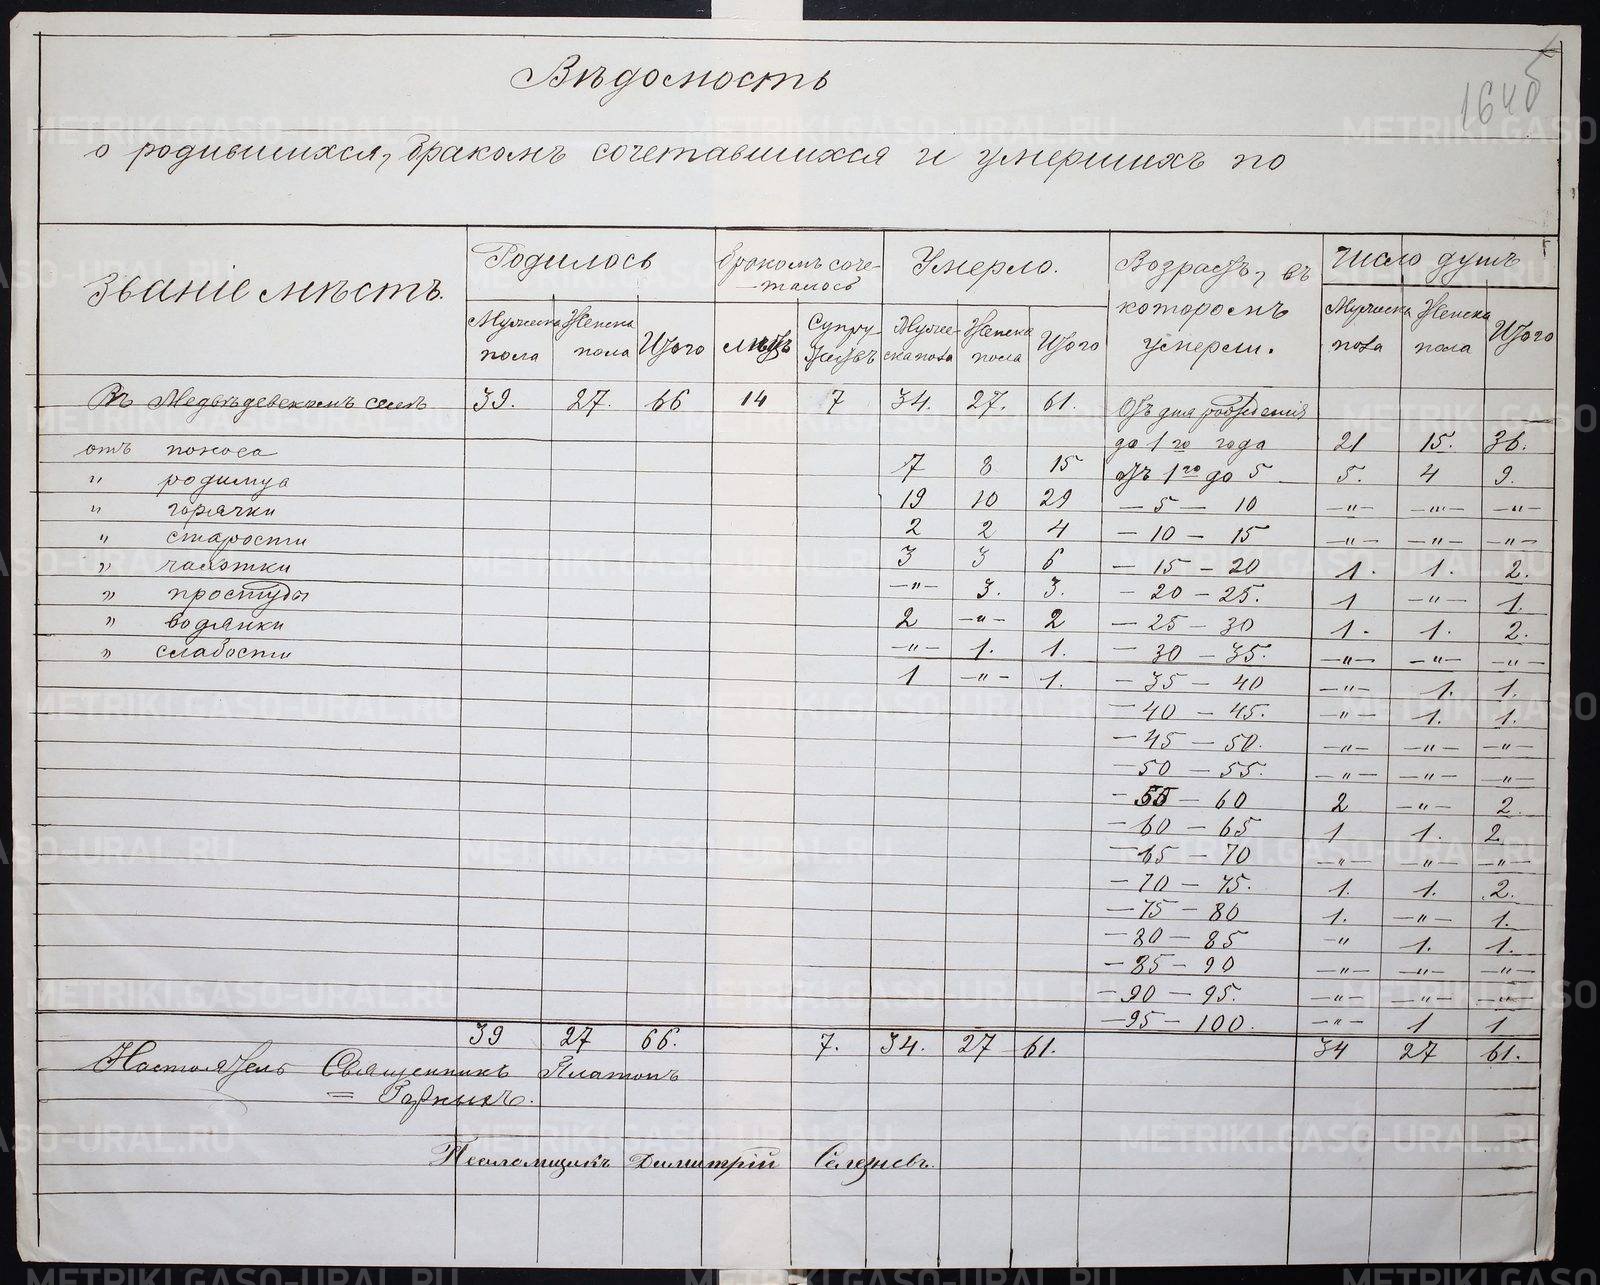 Вѣдомость
164 б
о родившихся, бракомъ сочетавшихся и умершихъ по
Званіе мѣстъ. Родилось бракомъ соче- Умерло. Возрастъ, въ Число душъ
талось которомъ
умерли.
Мужеска Женска Итого Супру- Муже- Женска Итого Мужеска Женска Итого
пола пола жествъ ска пола пола пола пола
Въ Медвѣдевскомъ селѣ 39. 27. 66 14 7 34. 27. 61. Отъ дня рожденія
до 1 го года 21 15. 36.
отъ поноса 7 8 15 отъ 1 го до 5 5. 4 9.
" родимца 19 10 29 — 5 — 10 —"— —"— —"—
" горячки 2 2 4 — 10 — 15 —"— —"— —"—
" старости 3 3 6 — 15 — 20 1. 1. 2.
" чахотки —"— 3. 3. — 20 — 25. 1 —"— 1.
" простуды 2 —"— 2 — 25 — 30 1. 1. 2.
" водянки —"— 1. 1. — 30 — 35. —"— —"— —"—
" слабости 1 —"— 1. — 35 — 40 —"— 1. 1.
— 40 — 45. —"— 1. 1.
— 45 — 50. —"— —"— —"—
— 50 — 55. —"— —"— —"—
— 55 — 60 2 —"— 2.
— 60 — 65 1 1. 2
— 65 — 70 —"— —"— —"—
— 70 — 75. 1. 1. 2.
— 75 — 80 1. —"— 1.
— 80 — 85 —" 1. 1.
— 85 — 90 —"— —"— —"—
— 90 — 95. —"— —"— —"—
— 95 — 100. —"— 1 1
39 27 66. 7. 34. 27 61. 34 27 61.
Настоятель Священникъ Платонъ
= Горныхъ.
Псаломщикъ Димитрій Селезневъ.
METRIKI.GASO-URAL.RU